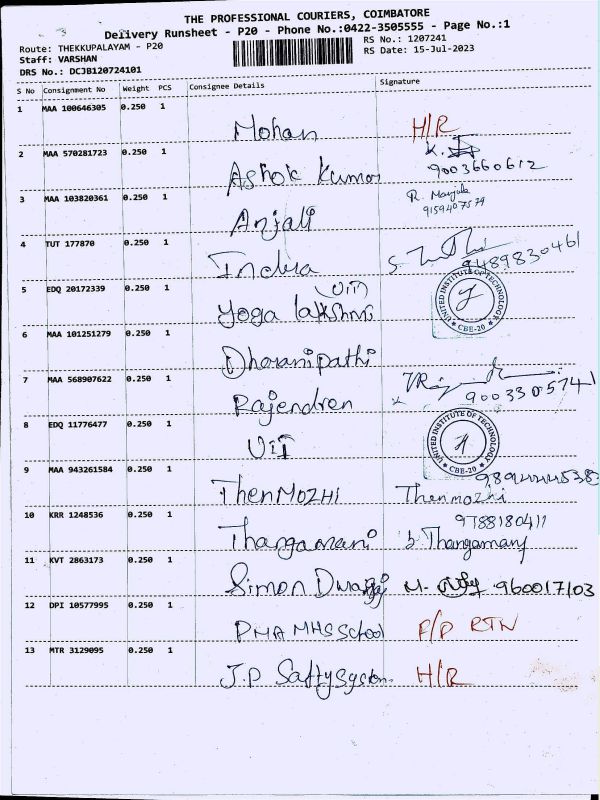 THE PROFESSIONAL COURIERS, COIMBATORE
Delivery Runsheet - P20 - Phone No.:0422-3505555 - Page No.:1
Route: THEKKUPALAYAM - P20 RS No.: 1207241
Staff: VARSHAN RS Date: 15-Jul-2023
DRS No.: DCJB120724101
S No Consignment No Weight PCS Consignee Details Signature
1 MAA 100646305 0.250 1
Mohan H/R
2 MAA 570281723 0.250 1
Ashok Kumar 9003660612
3 MAA 103820361 0.250 1
Anjali R. Manjula
9159407579
4 TUT 177870 0.250 1
Indira 9489830461
5 EDQ 20172339 0.250 1
(UIT)
Yoga lakshmi UNITED INSTITUTE OF TECHNOLOGY CBE-20
6 MAA 101251279 0.250 1
Dharanipathi
7 MAA 568907622 0.250 1
Rajendren 9003305741
8 EDQ 11776477 0.250 1
UIT UNITED INSTITUTE OF TECHNOLOGY CBE-20
9 MAA 943261584 0.250 1
ThenMOZHI Thenmozhi
10 KRR 1248536 0.250 1
9788180411
Thangamani Thangamany
11 KVT 2863173 0.250 1
Simon M. 960017103
12 DPI 10577995 0.250 1
PMA MHS School F/P RTN
13 MTR 3129095 0.250 1
J.P Saftysystem H/R